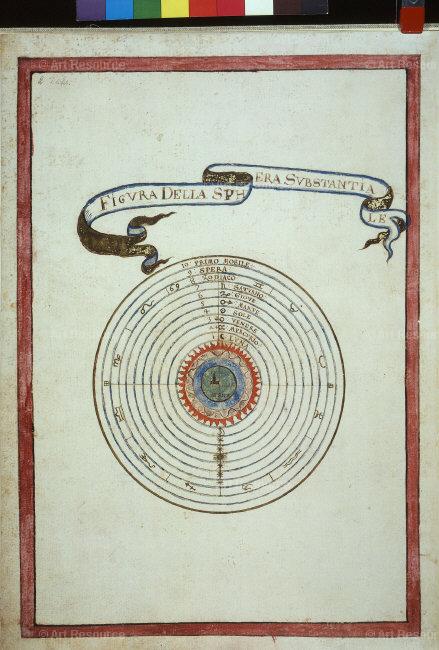 © Art Resource
© Art Resource
FIGVRA DELLA SPHERA SVBSTANTIALE
10 PRIMO MOBILE
9 SPERA
8 ZODIACO
7 ♄ SATVRNO
6 ♃ GIOVE
5 ♂ MARTE
4 ☉ SOLE
3 ♀ VENERE
2 ☿ MERCVRIO
1 ☾ LVNA
© Art Resource
© Art Resource